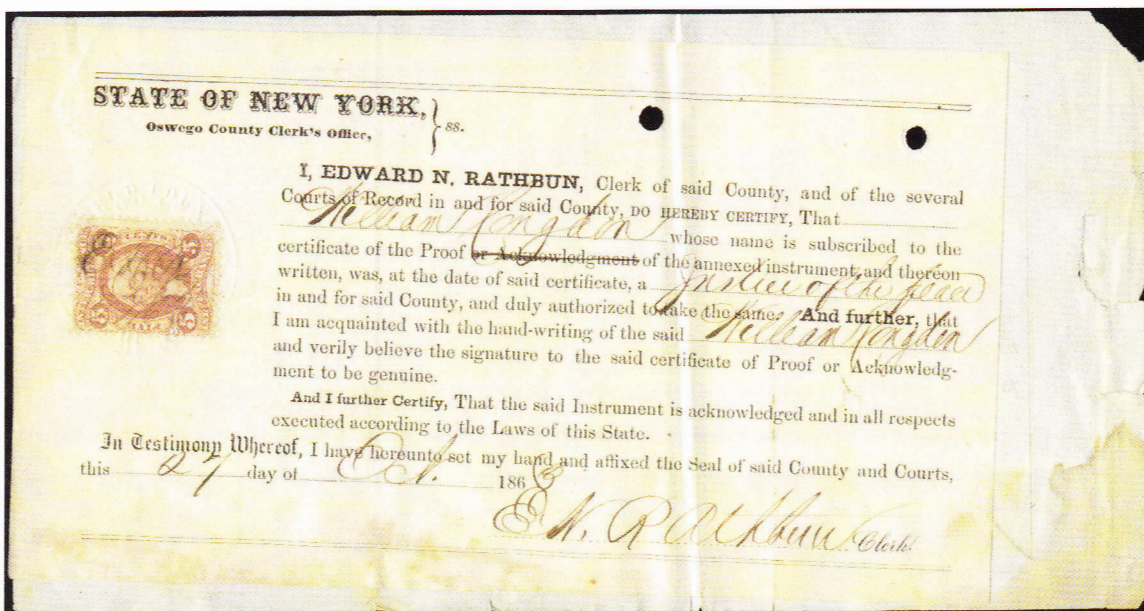 STATE OF NEW YORK,
Oswego County Clerk's Office, } ss.
I, EDWARD N. RATHBUN, Clerk of said County, and of the several
Courts of Record in and for said County, DO HEREBY CERTIFY, That
William Congdon whose name is subscribed to the
certificate of the Proof or Acknowledgment of the annexed instrument, and thereon
written, was, at the date of said certificate, a Justice of the peace
in and for said County, and duly authorized to take the same. And further, that
I am acquainted with the hand-writing of the said William Congdon
and verily believe the signature to the said certificate of Proof or Acknowledg-
ment to be genuine.
And I further Certify, That the said Instrument is acknowledged and in all respects
executed according to the Laws of this State.
In Testimony Whereof, I have hereunto set my hand and affixed the Seal of said County and Courts,
this 27 day of Oct. 1863
E N. Rathbun Clerk.
5 5
5 5